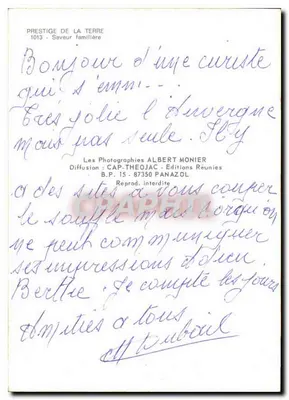 PRESTIGE DE LA TERRE
1013 - Saveur familière
Bonjour d'une curiste
qui s'enn....
Très jolie l'Auvergne
mais pas seule. Il y
Les Photographies ALBERT MONIER
Diffusion : CAP-THEOJAC - Editions Réunies
B.P. 15 - 87350 PANAZOL
Reprod. interdite
a des sites à vous couper
le souffle mais lorsqu'on
ne peut communiquer
ses impressions
Berthe. Je compte les jours
Amitiés à tous